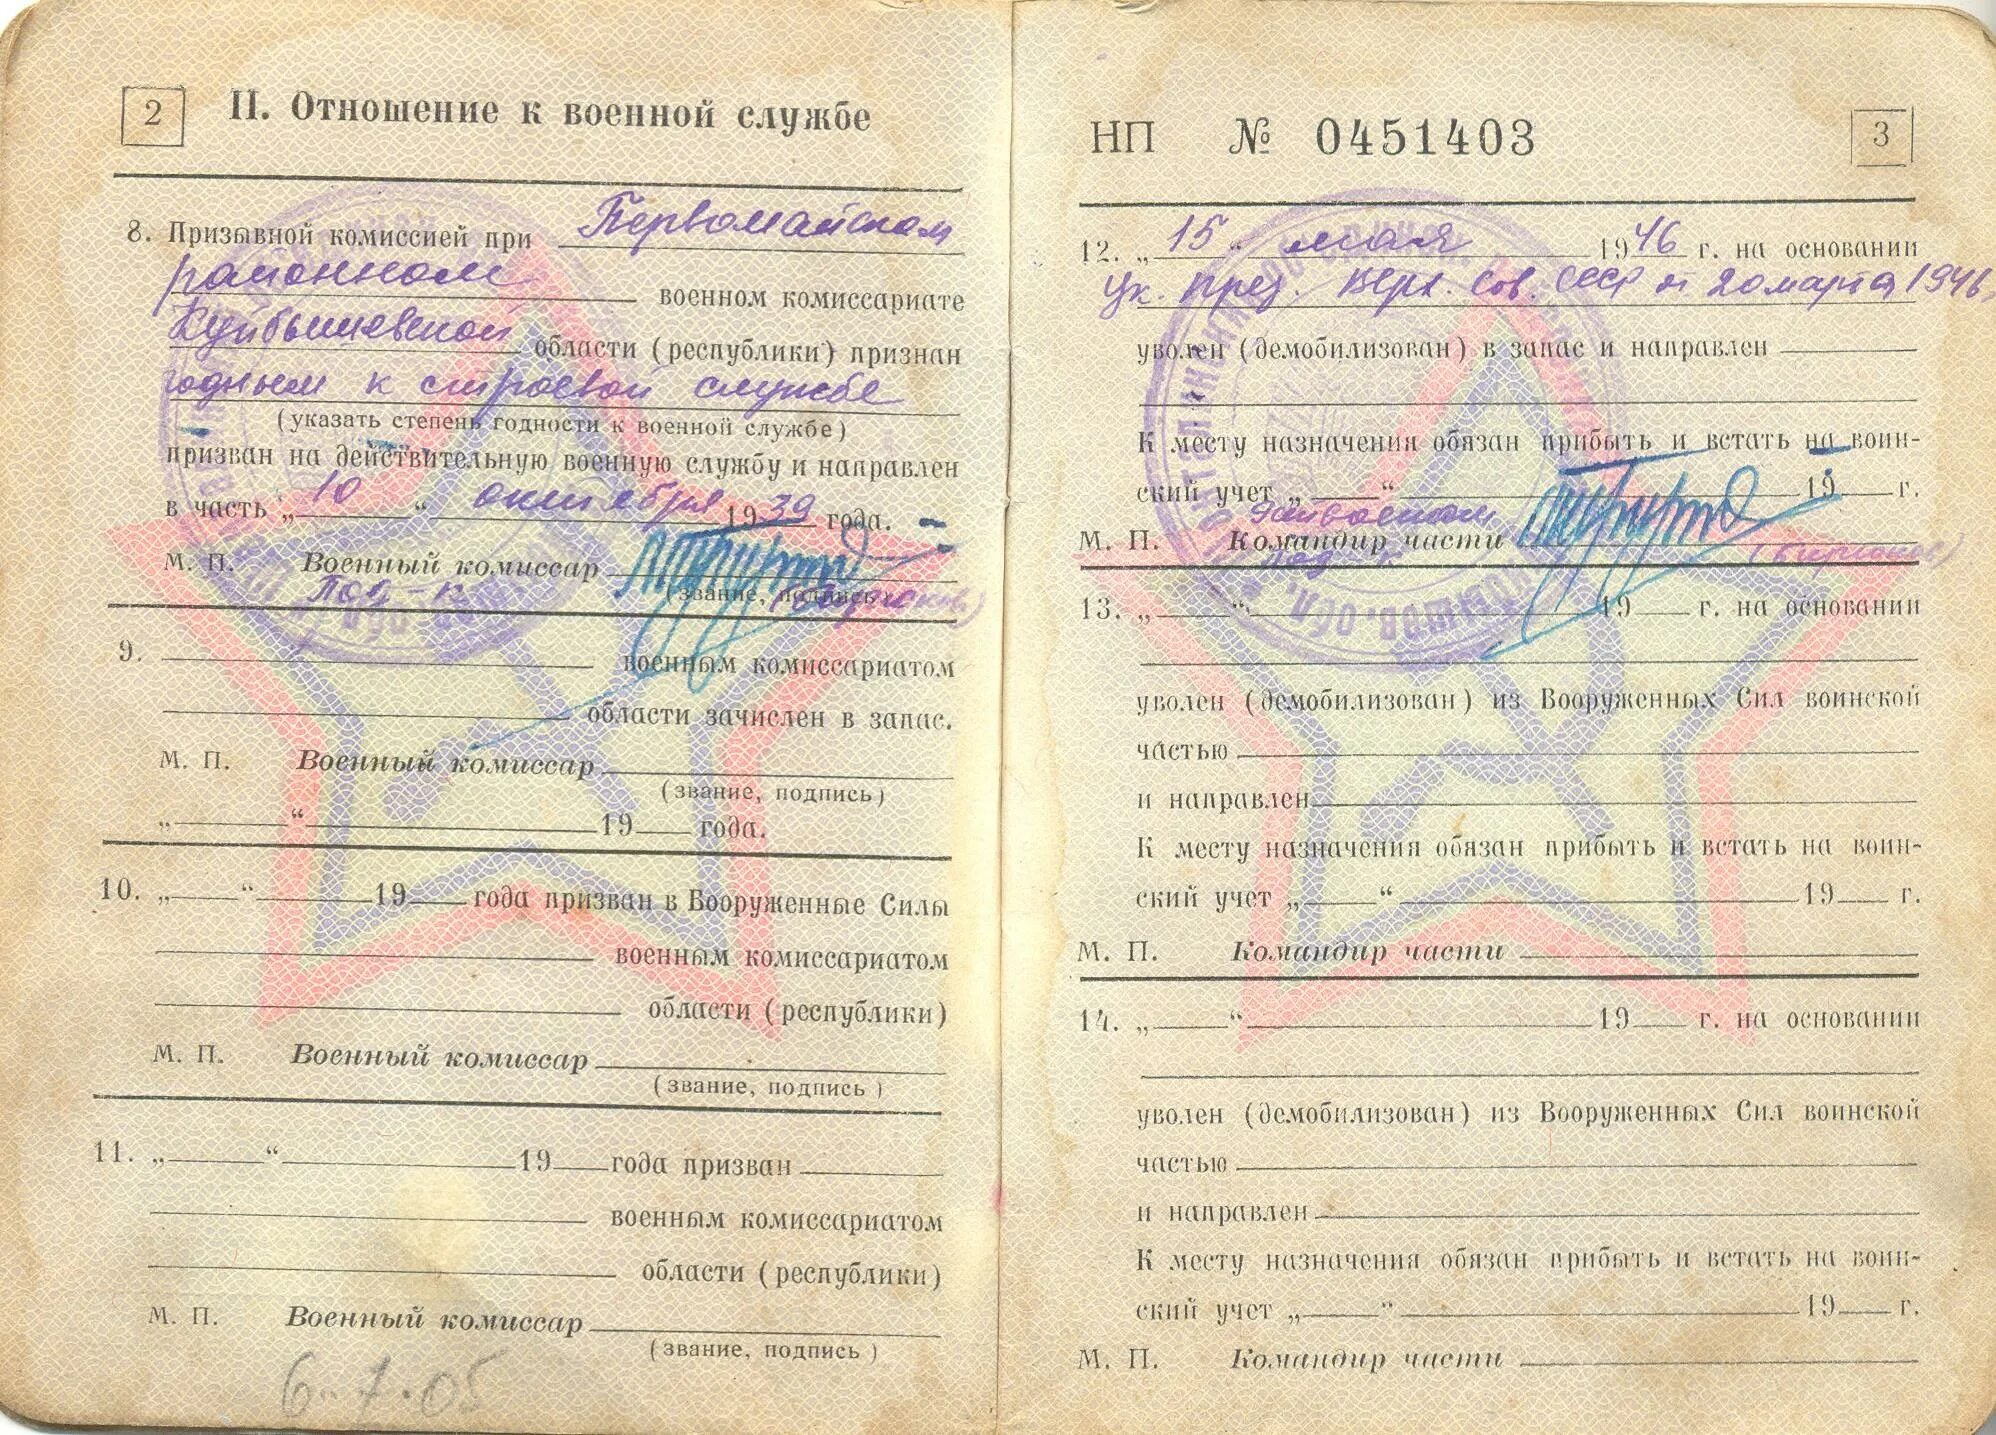 2
II. Отношение к военной службе
8. Призывной комиссией при Первомайском
районном военном комиссариате
Куйбышевской области (республики) признан
годным к строевой службе
(указать степень годности к военной службе)
призван на действительную военную службу и направлен
в часть „10“ октября 1939 года.
М. П. Военный комиссар
(звание, подпись)
9. военным комиссариатом
области зачислен в запас.
М. П. Военный комиссар
(звание, подпись)
„ “ 19 года.
10. „ “ 19 года призван в Вооруженные Силы
военным комиссариатом
области (республики)
М. П. Военный комиссар
(звание, подпись)
11. „ “ 19 года призван
военным комиссариатом
области (республики)
М. П. Военный комиссар
(звание, подпись)
6.7.05
НП № 0451403
3
12. „15“ мая 1946 г. на основании
Ук. През. Верх. Сов. СССР от 20 марта 1946
уволен (демобилизован) в запас и направлен
К месту назначения обязан прибыть и встать на воин-
ский учет „ “ 19 г.
М. П. Командир части
13. „ “ 19 г. на основании
уволен (демобилизован) из Вооруженных Сил воинской
частью
и направлен
К месту назначения обязан прибыть и встать на воин-
ский учет „ “ 19 г.
М. П. Командир части
14. „ “ 19 г. на основании
уволен (демобилизован) из Вооруженных Сил воинской
частью
и направлен
К месту назначения обязан прибыть и встать на воин-
ский учет „ “ 19 г.
М. П. Командир части